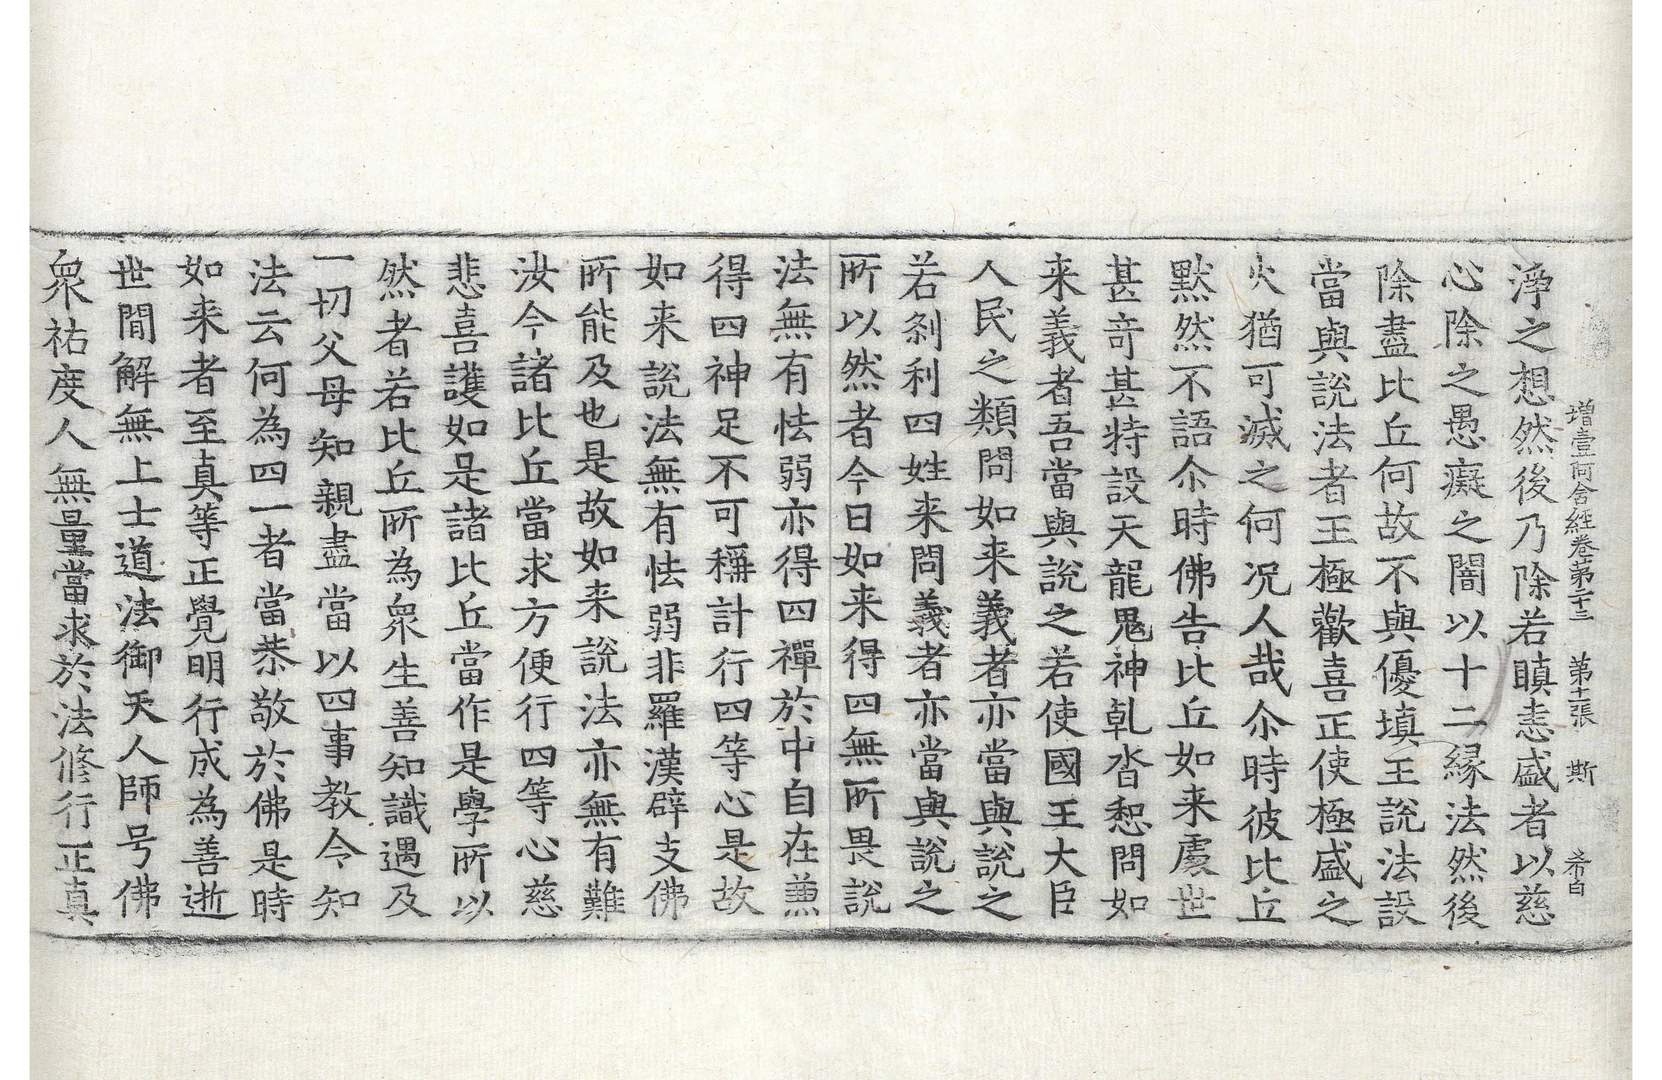 增壹阿含經卷第二十三 第十一張 斯 希白
淨之想然後乃除若瞋恚盛者以慈
心除之愚癡之闇以十二緣法然後
除盡比丘何故不與優填王說法設
當與說法者王極歡喜正使極盛之
火猶可滅之何況人哉尒時彼比丘
默然不語尒時佛告比丘如来處世
甚奇甚特設天龍鬼神乹沓惒問如
来義者吾當與說之若使國王大臣
人民之類問如来義者亦當與說之
若剎利四姓来問義者亦當與說之
所以然者今日如来得四無所畏說
法無有怯弱亦得四禪於中自在兼
得四神足不可稱計行四等心是故
如来說法無有怯弱非羅漢辟支佛
所能及也是故如来說法亦無有難
汝今諸比丘當求方便行四等心慈
悲喜護如是諸比丘當作是學所以
然者若比丘所為衆生善知識遇及
一切父母知親盡當以四事教令知
法云何為四一者當恭敬於佛是時
如来者至真等正覺明行成為善逝
世間解無上士道法御天人師号佛
衆祐度人無量當求於法修行正真